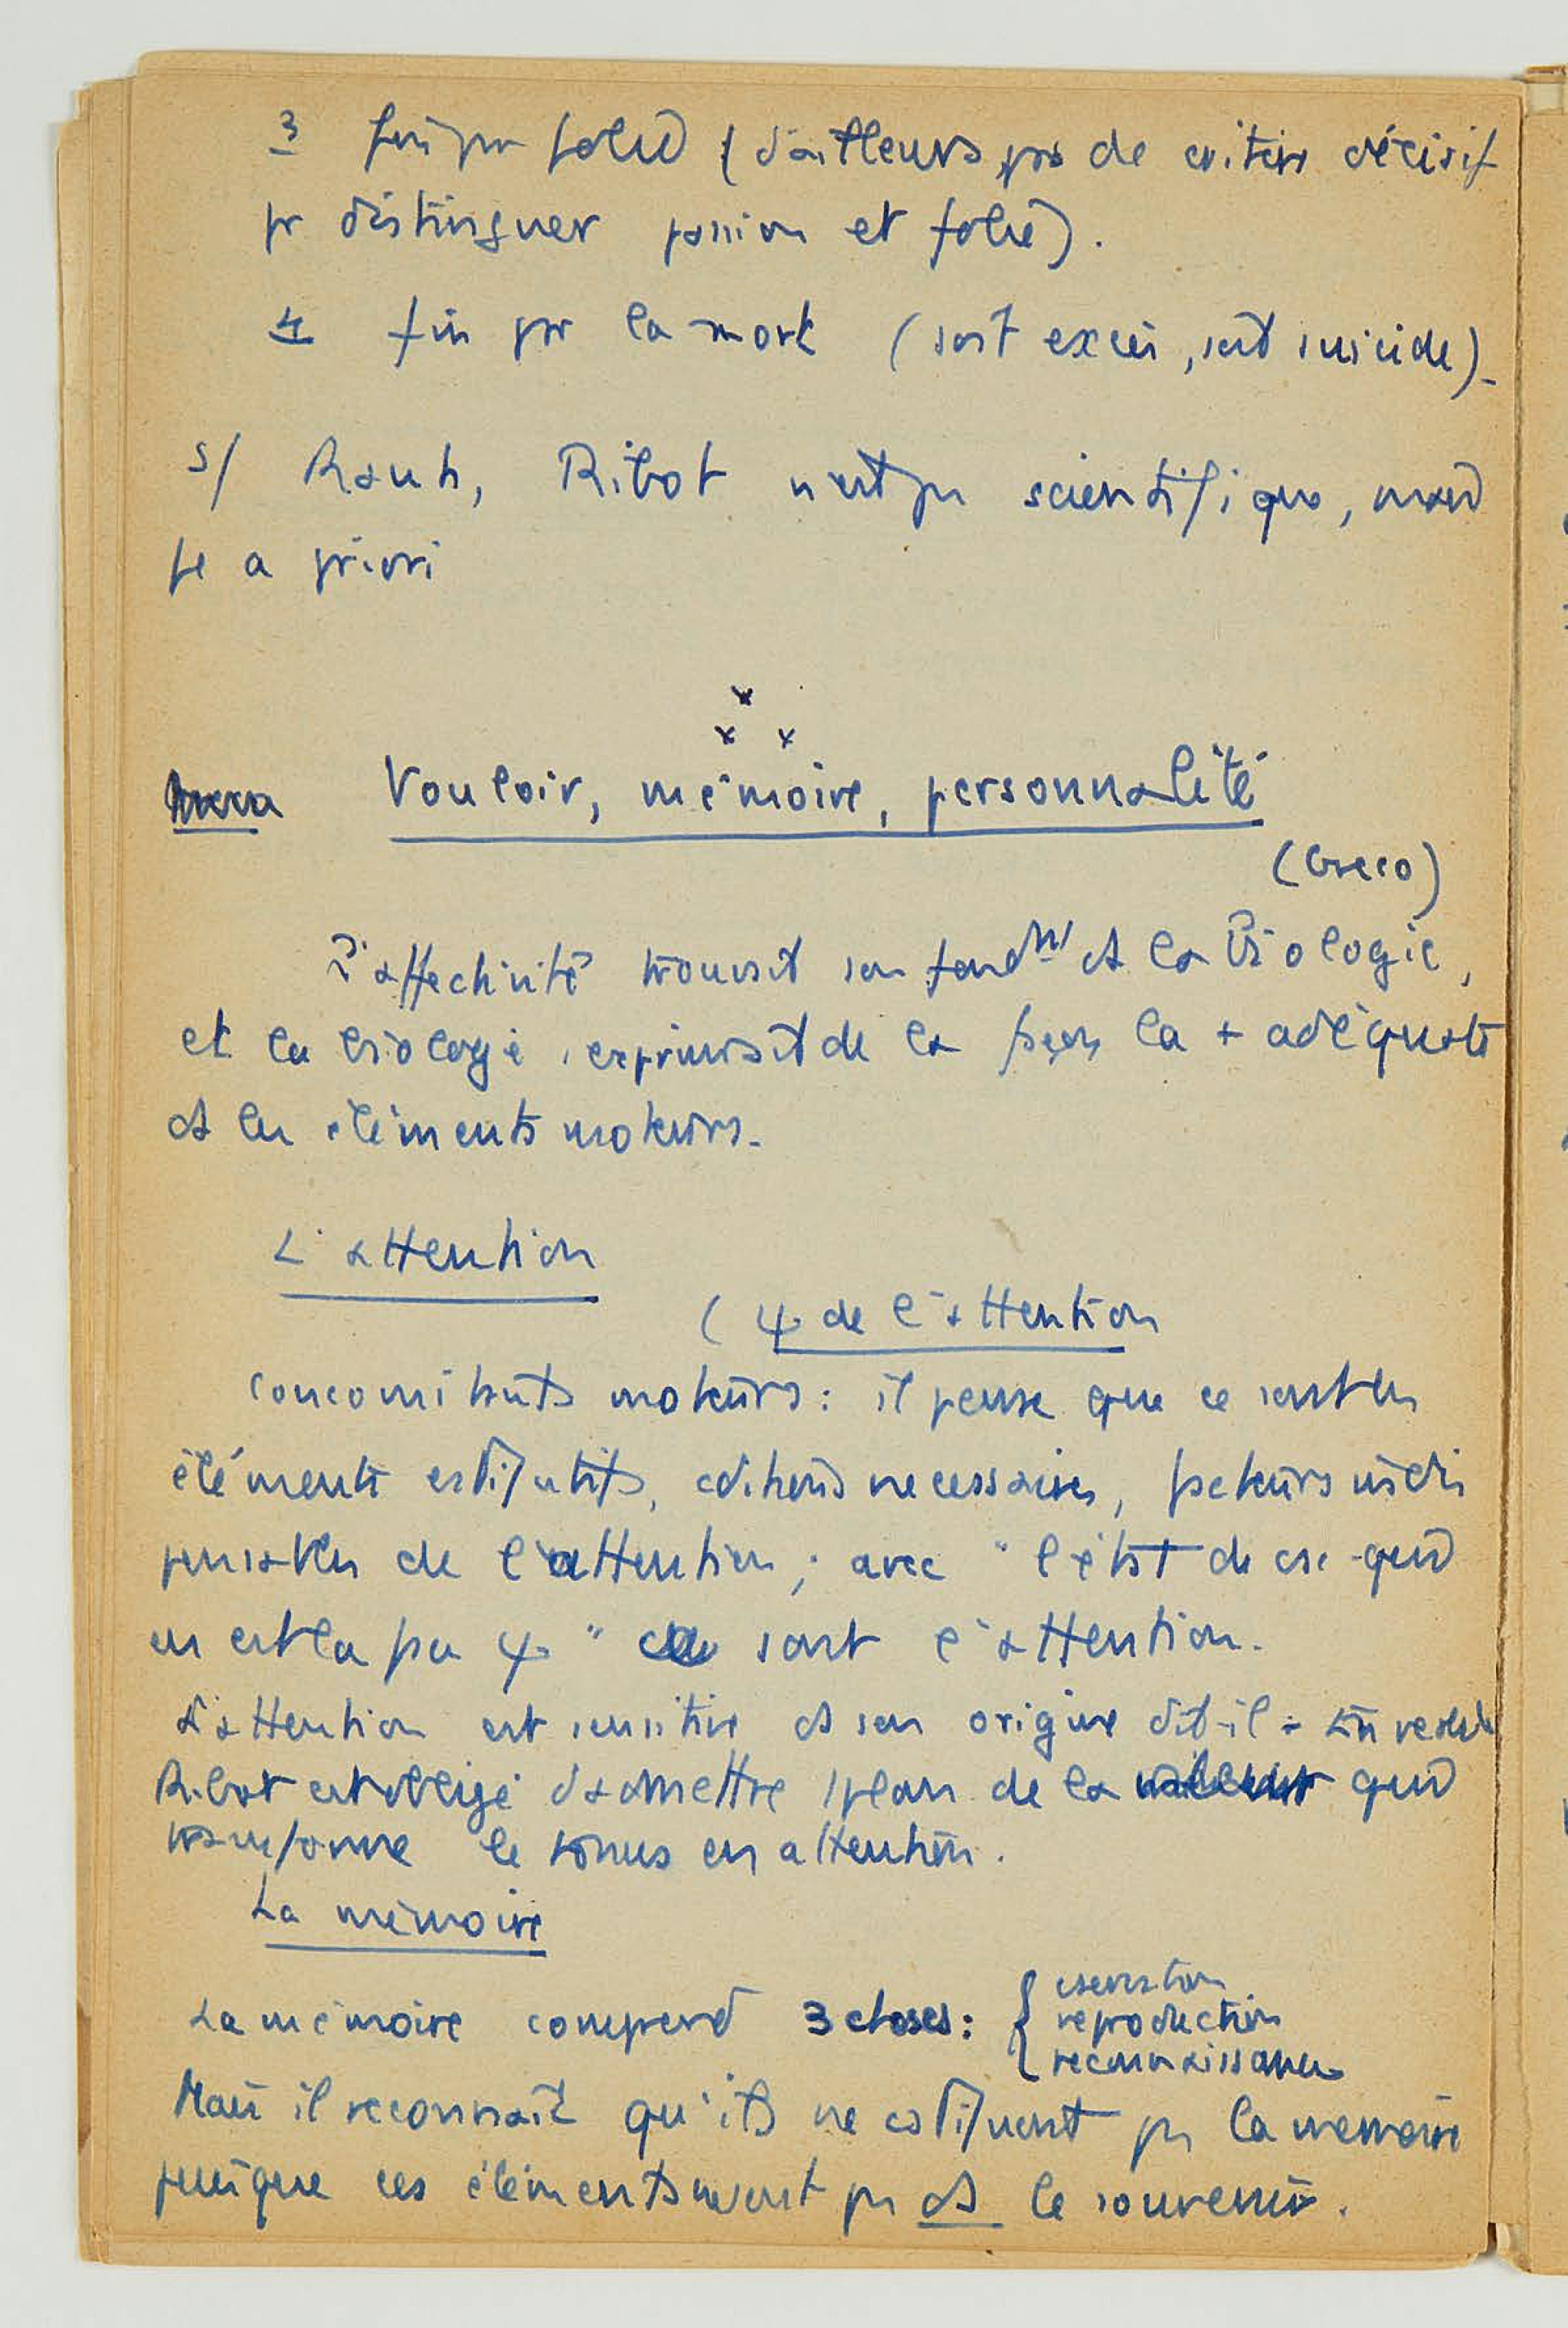 3 fin par folie (d'ailleurs pas de critère décisif
pr distinguer passion et folie).
4 fin par la mort (soit excès, soit suicide).
5/ Rauh, Ribot n'est pas scientifique, mais
a priori
Vouloir, mémoire, personnalité
(Greco)
L'affectivité trouvait son fondmt ds la Biologie,
et la biologie s'exprimait de la façon la + adéquate
ds les éléments moteurs.
L'attention
( ψ de l'attention
concomitants moteurs : il pense que ce sont les
éléments cstitutifs, cditions necessaires, facteurs indis
pensables de l'attention ; avec "l'état de csc qui
en est la face ψ" sont l'attention.
L'attention est sensitive ds son origine dit-il - En
Ribot est obligé d'admettre de la qui
transforme le tonus en attention.
La mémoire
La mémoire comprend 3 choses : { cservation
reproduction
reconnaissance
Mais il reconnait qu'ils ne cstituent pas la memoire
puisque ces éléments ne sont pas ds le souvenir.